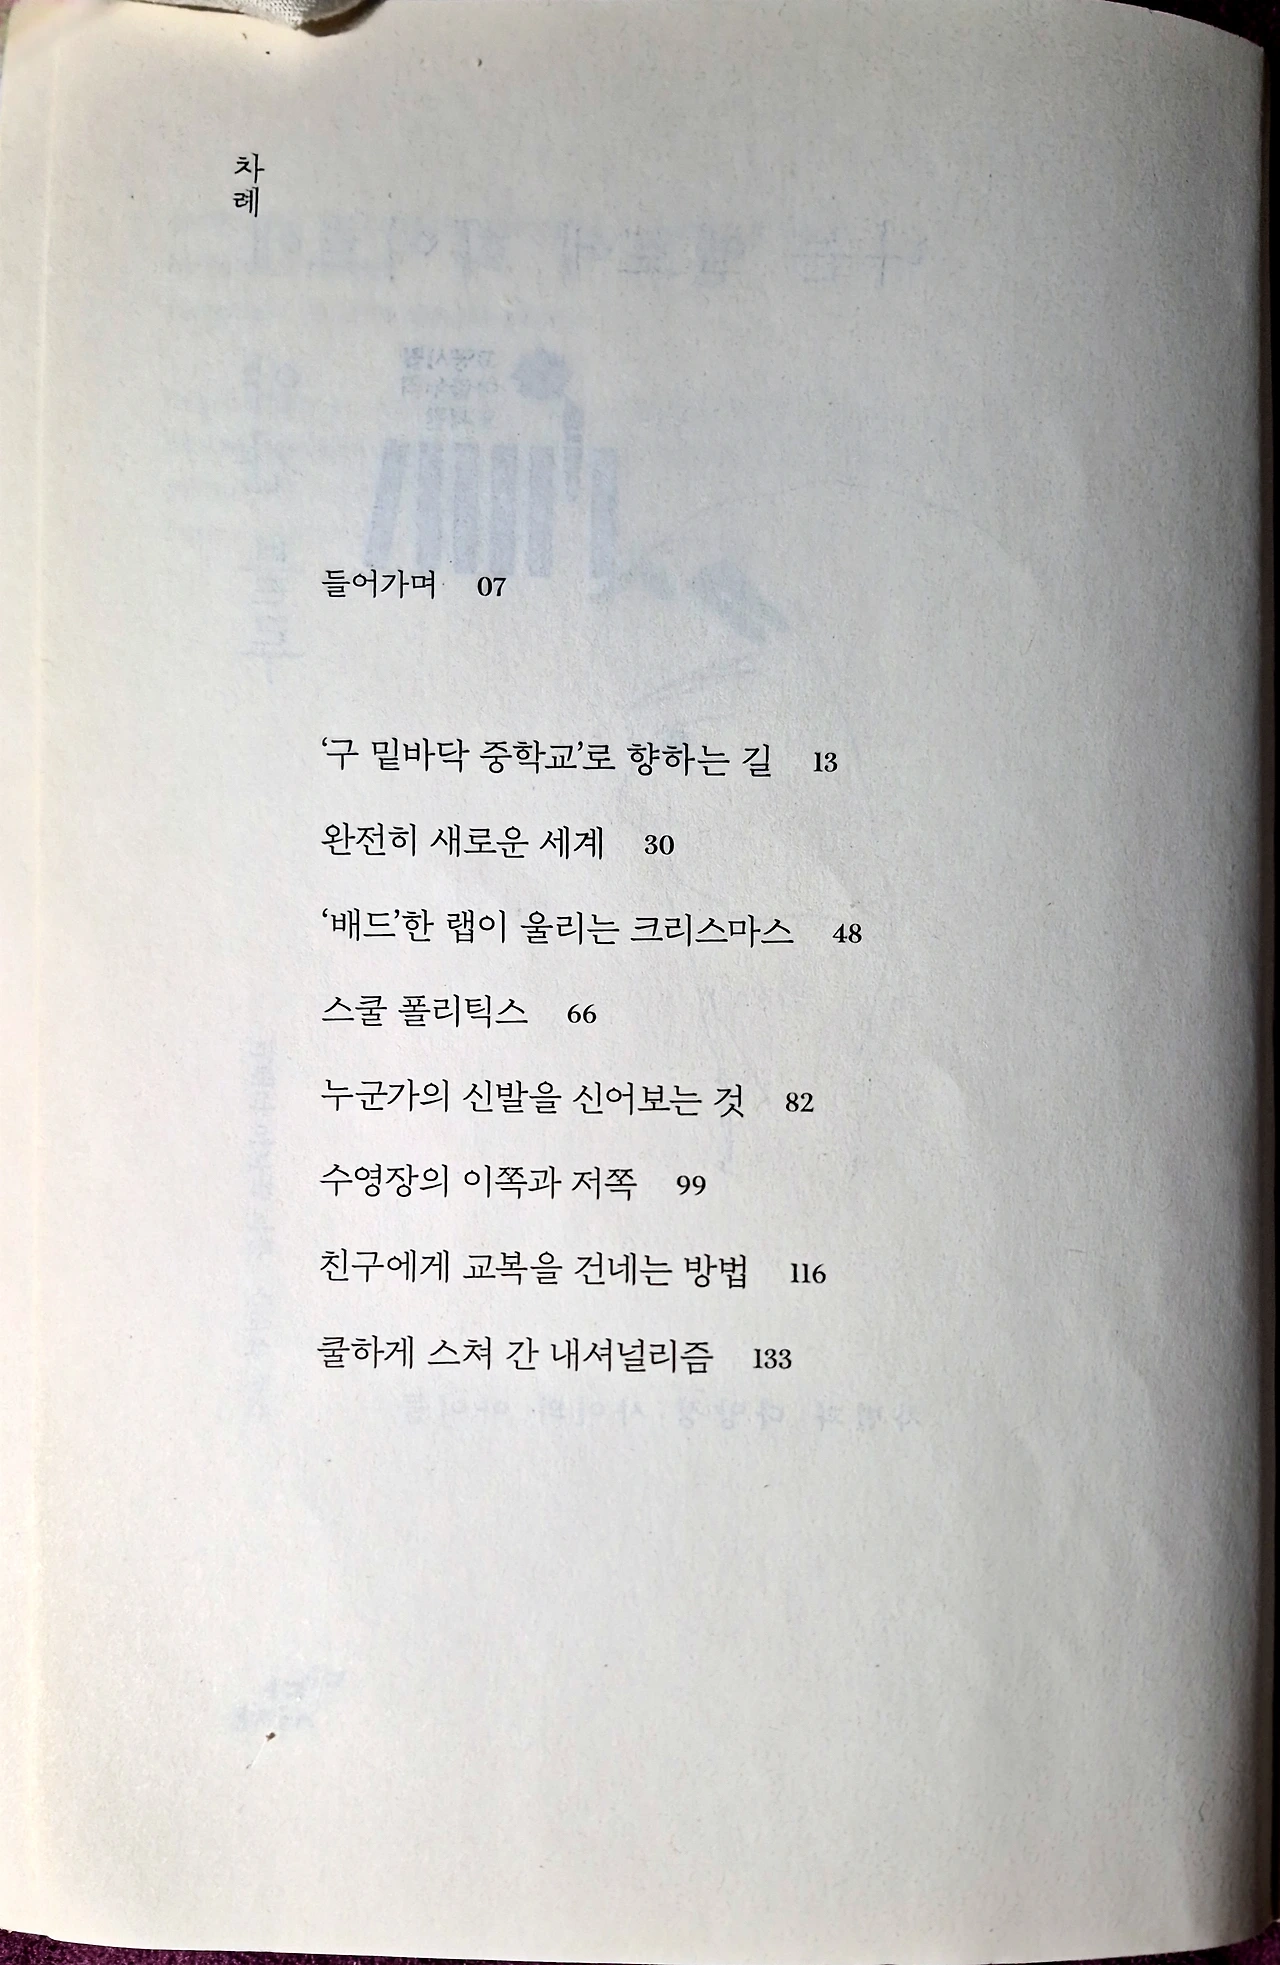 차
례
들어가며 07
‘구 밑바닥 중학교’로 향하는 길 13
완전히 새로운 세계 30
‘배드’한 랩이 울리는 크리스마스 48
스쿨 폴리틱스 66
누군가의 신발을 신어보는 것 82
수영장의 이쪽과 저쪽 99
친구에게 교복을 건네는 방법 116
쿨하게 스쳐 간 내셔널리즘 133